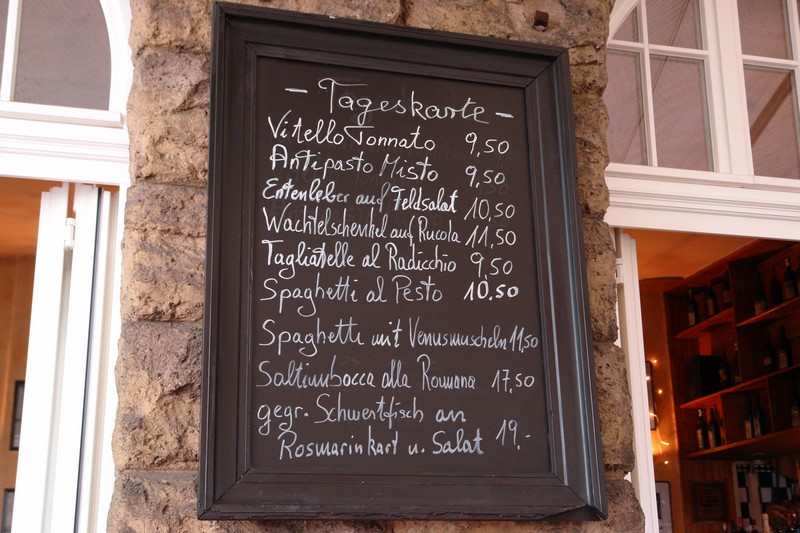 - Tageskarte -
Vitello Tonnato 9,50
Antipasto Misto 9,50
Entenleber auf Feldsalat 10,50
Wachtelschenkel auf Rucola 11,50
Tagliatelle al Radicchio 9,50
Spaghetti al Pesto 10,50
Spaghetti mit Venusmuscheln 11,50
Saltimbocca alla Romana 17,50
gegr. Schwertfisch an
Rosmarinkart u. Salat 19.-